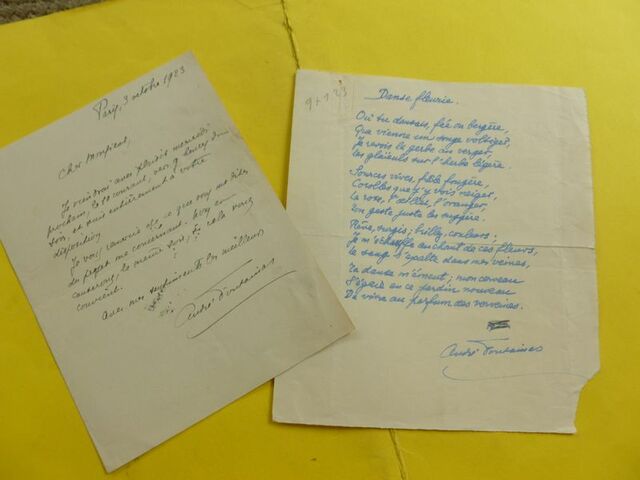 Paris, 3 octobre 1923
Cher Monsieur,
Je vous avec plaisir mercredi
prochain, le 10 courant, vers 9 heures
et suis entièrement à votre
disposition.
Je ce que vous me dites
du projet me concernant. Nous en
causerons, le même soir, si cela vous
convient.
Avec mes sentiments les meilleurs
André Fontainas
Danse fleurie.
Où tu dansais, fée ou bergère,
Que vienne un songe voltiger,
Je revois la gerbe au verger,
Les glaïeuls sur l'herbe légère.
Sources vives, frêle fougère,
Corolles que j'y vois neiger,
La rose, l'œillet, l'oranger,
Ton geste juste les suggère.
Rêve, surgis; brillez, couleurs;
Je m'échauffe au chant de ces fleurs,
Le sang s'exalte dans mes veines,
Ta danse m'émeut; mon cerveau
S'égare en ce jardin nouveau
De vivre au parfum des verveines.
André Fontainas